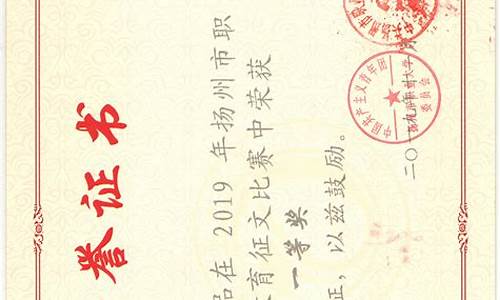 誉证书
品在 2019 年扬州市职
育征文比赛中荣获
一等奖
证，以兹鼓励。
中国共产主义青年团
委员会
二〇一九年